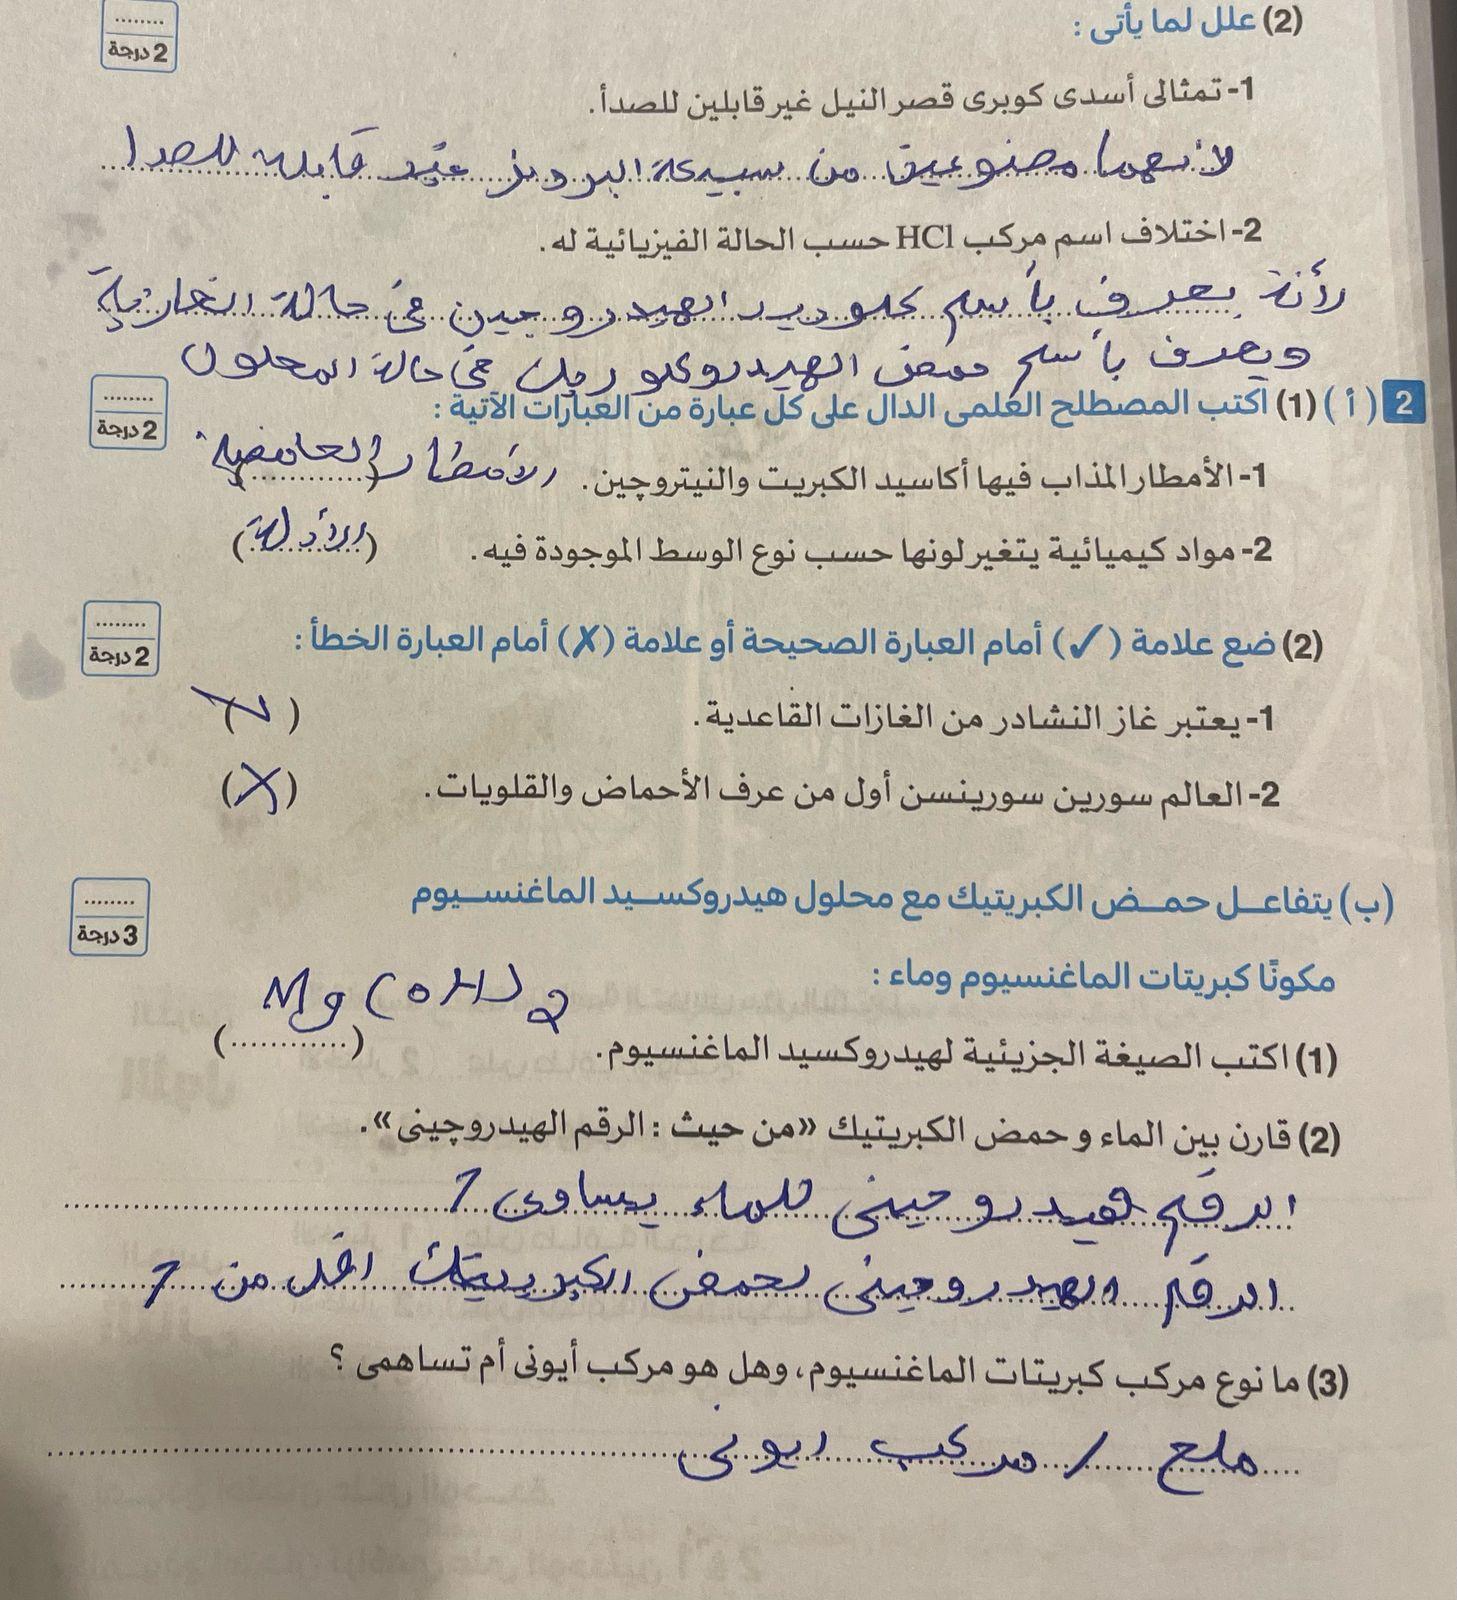 (2) علل لما يأتى :
........
2 درجة
1- تمثالى أسدى كوبرى قصر النيل غير قابلين للصدأ.
لأنهما مصنوعين من سبيكة البرونز غير قابلة للصدا
2- اختلاف اسم مركب HCl حسب الحالة الفيزيائية له.
لأنة يعرف بأسم كلوريد الهيدروجين فى حالة الغازية
ويعرف بأسم حمض الهيدروكلوريك فى حالة المحلول
2 (أ) (1) اكتب المصطلح العلمى الدال على كل عبارة من العبارات الآتية :
........
2 درجة
1- الأمطار المذاب فيها أكاسيد الكبريت والنيتروچين. (الأمطار الحامضية)
2- مواد كيميائية يتغير لونها حسب نوع الوسط الموجودة فيه. (الأدلة)
(2) ضع علامة (✓) أمام العبارة الصحيحة أو علامة (✗) أمام العبارة الخطأ :
........
2 درجة
1- يعتبر غاز النشادر من الغازات القاعدية. (✓)
2- العالم سورين سورينسن أول من عرف الأحماض والقلويات. (X)
(ب) يتفاعل حمض الكبريتيك مع محلول هيدروكسيد الماغنسيوم
........
3 درجة
مكونًا كبريتات الماغنسيوم وماء :
Mg(OH)2
(1) اكتب الصيغة الجزيئية لهيدروكسيد الماغنسيوم. (............)
(2) قارن بين الماء و حمض الكبريتيك «من حيث : الرقم الهيدروچينى».
الرقم هيدروجينى للماء يساوى 7
الرقم الهيدروجينى لحمض الكبريتيك اقل من 7
(3) ما نوع مركب كبريتات الماغنسيوم، وهل هو مركب أيونى أم تساهمى ؟
ملح / مركب ايونى